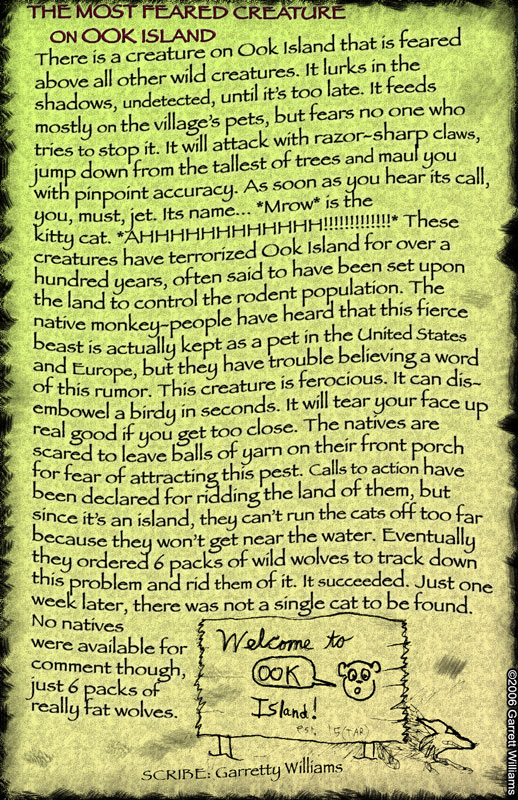 THE MOST FEARED CREATURE
ON OOK ISLAND
There is a creature on Ook Island that is feared
above all other wild creatures. It lurks in the
shadows, undetected, until it's too late. It feeds
mostly on the village's pets, but fears no one who
tries to stop it. It will attack with razor-sharp claws,
jump down from the tallest of trees and maul you
with pinpoint accuracy. As soon as you hear its call,
you, must, jet. Its name... *Mrow* is the
kitty cat. *AHHHHHHHHHHHHH!!!!!!!!!!!!!* These
creatures have terrorized Ook Island for over a
hundred years, often said to have been set upon
the land to control the rodent population. The
native monkey-people have heard that this fierce
beast is actually kept as a pet in the United States
and Europe, but they have trouble believing a word
of this rumor. This creature is ferocious. It can dis-
embowel a birdy in seconds. It will tear your face up
real good if you get too close. The natives are
scared to leave balls of yarn on their front porch
for fear of attracting this pest. Calls to action have
been declared for ridding the land of them, but
since it's an island, they can't run the cats off too far
because they won't get near the water. Eventually
they ordered 6 packs of wild wolves to track down
this problem and rid them of it. It succeeded. Just one
week later, there was not a single cat to be found.
No natives
were available for
comment though,
just 6 packs of
really fat wolves.
Welcome to
OOK
Island!
est.
SCRIBE: Garretty Williams
©2006 Garrett Williams